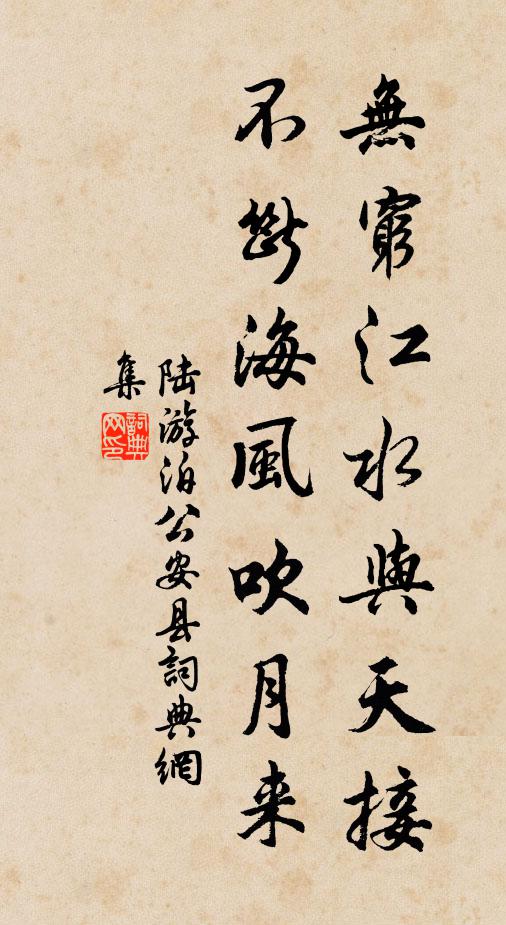 無窮江水與天接
不斷海風吹月来
陆游泊公安县詞典網
集
詞典网印